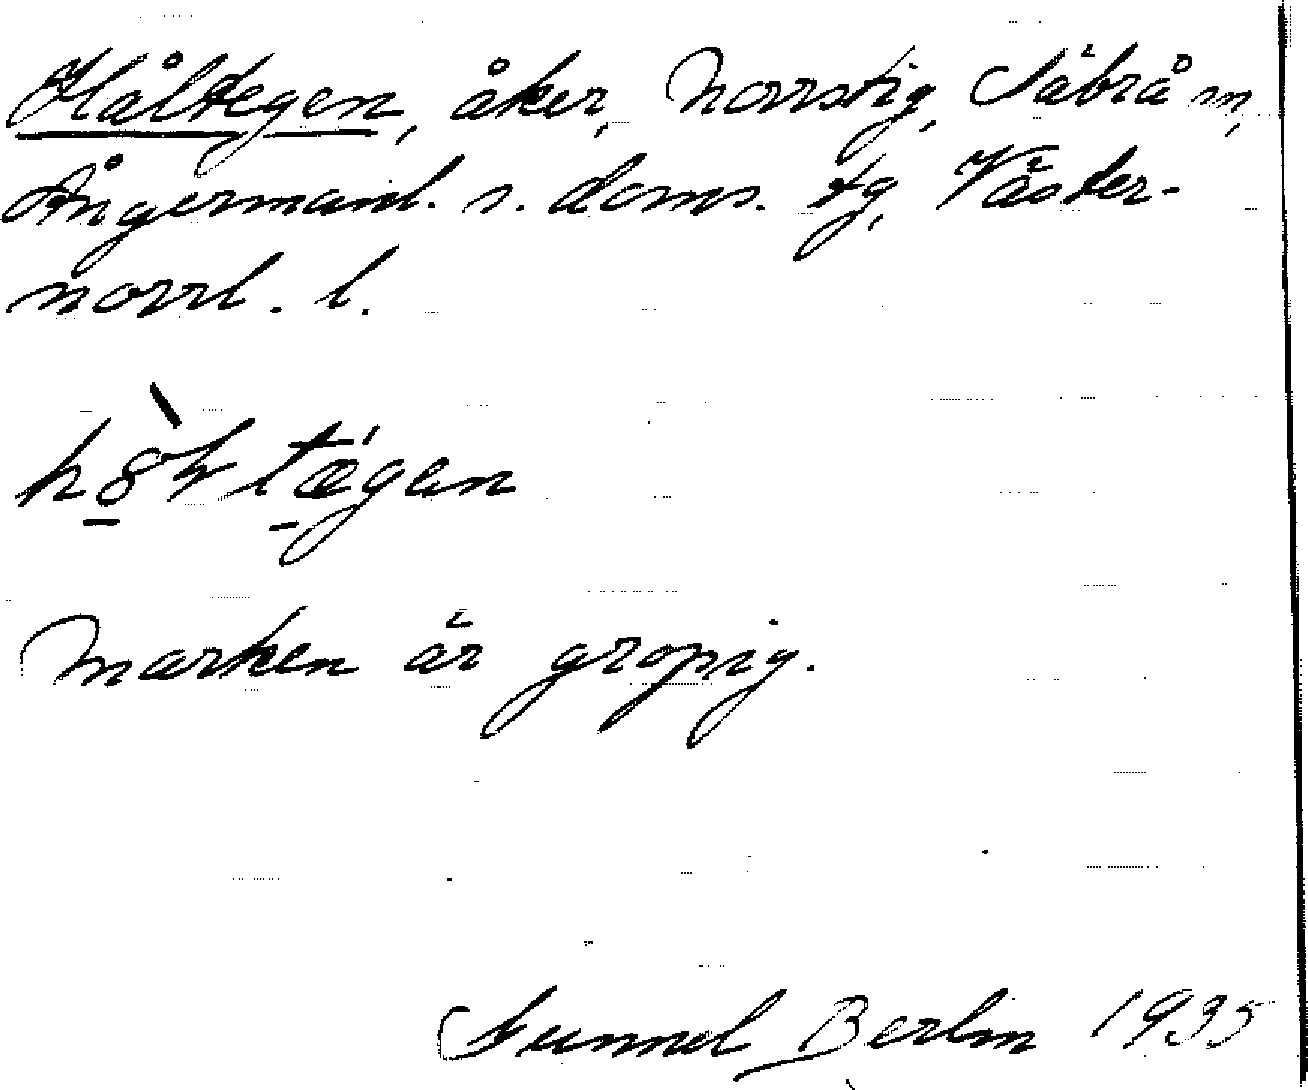 Håltegen, åker, Norrstig, Säbrå sn,
Ångermanl. s. doms. tg, Väster-
norrl. l.
Marken är gropig.
Gunnel Berlin 1935